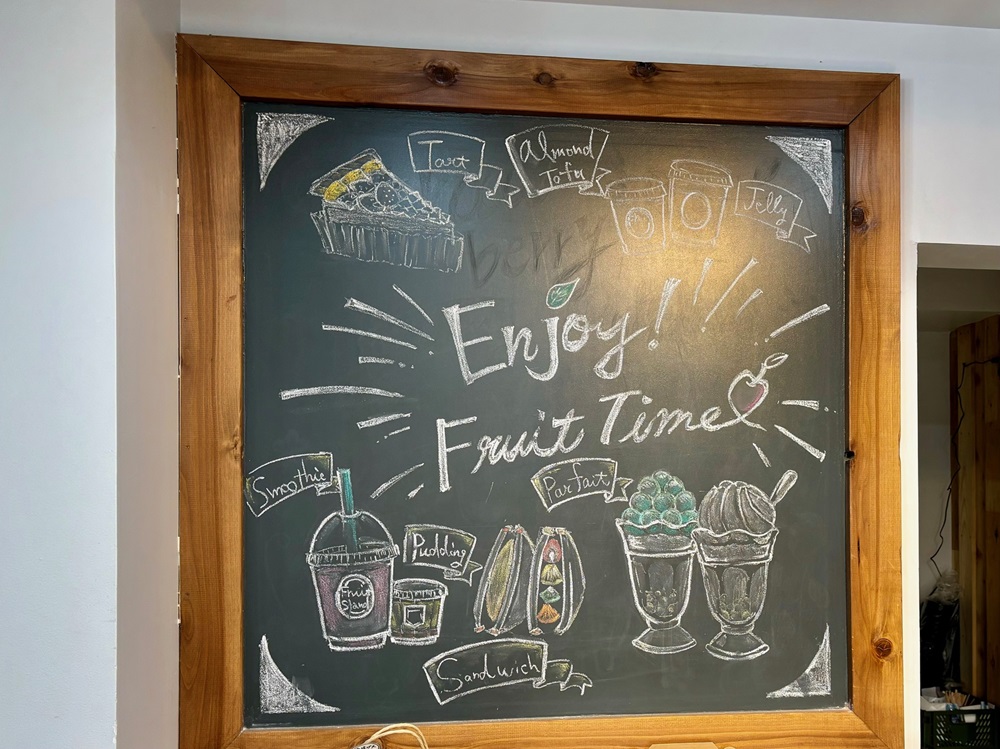 Tart
Almond
Tofu
Jelly
berry
Enjoy!
Fruit Time
Smoothie
Parfait
Pudding
Fruit
Stand
Sandwich